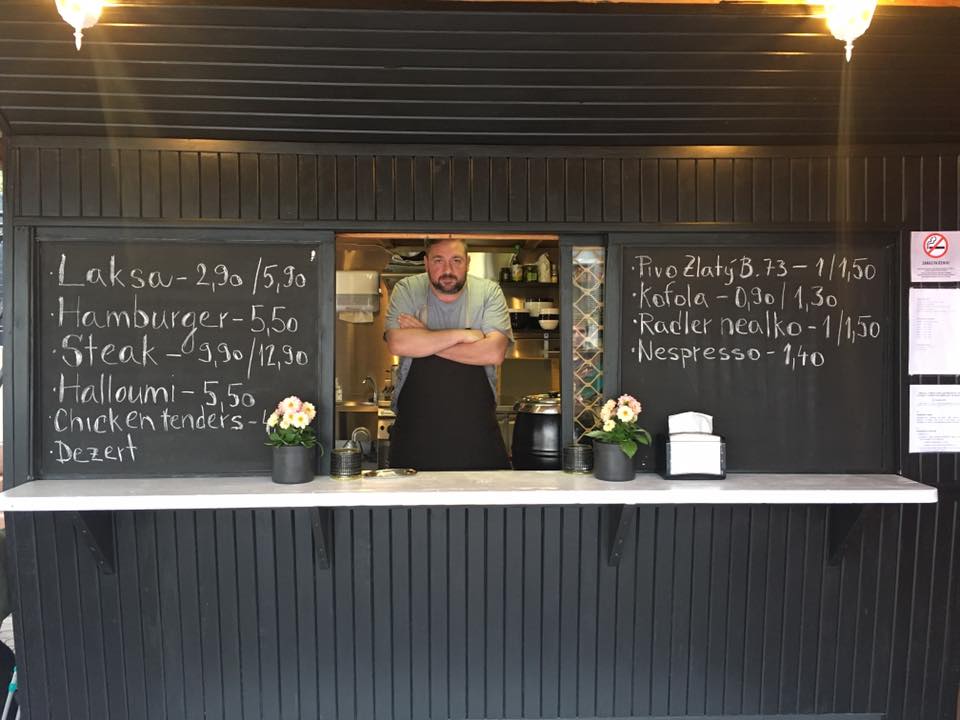 · Laksa – 2,90 / 5,90
· Hamburger – 5,50
· Steak – 9,90/12,90
· Halloumi – 5,50
· Chicken tenders –
· Dezert
· Pivo Zlatý B. 73 – 1/1,50
· Kofola – 0,90 / 1,30
· Radler nealko – 1/1,50
· Nespresso – 1,40